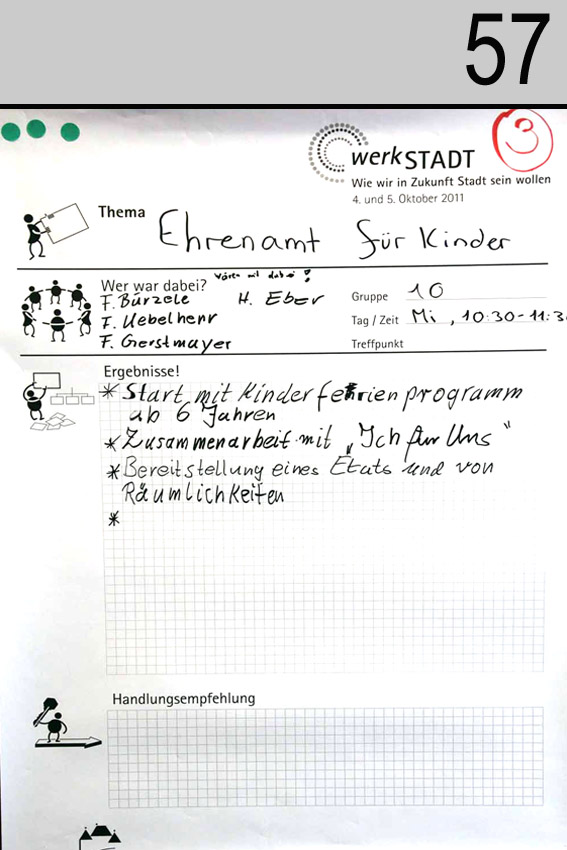 57
3
werkSTADT
Wie wir in Zukunft Stadt sein wollen
4. und 5. Oktober 2011
Thema Ehrenamt für Kinder
Wer war dabei? wären mit dabei!
F. Bürzele H. Eber
Gruppe 10
F. Uebelherr
Tag / Zeit Mi, 10:30-11:3
F. Gerstmayer
Treffpunkt
Ergebnisse!
* Start mit Kinderferienprogramm
ab 6 Jahren
* Zusammenarbeit mit „Ich für Uns"
* Bereitstellung eines Etats und von
Räumlichkeiten
*
Handlungsempfehlung